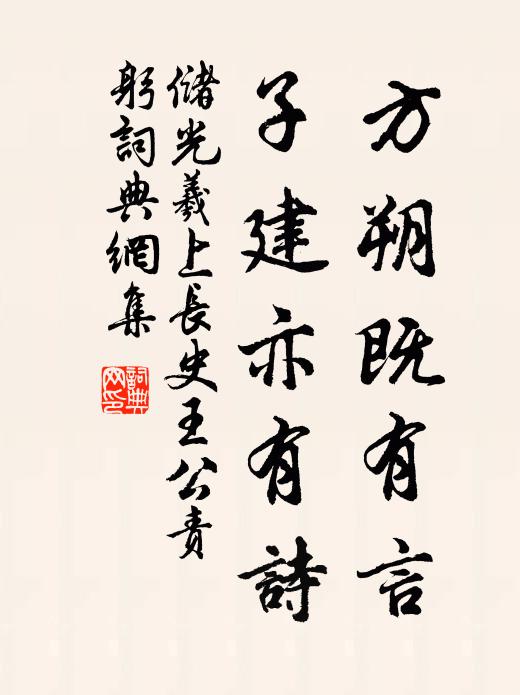 方朔既有言
子建亦有詩
儲光羲上長史王公責
躬詞典網集
詞典網印